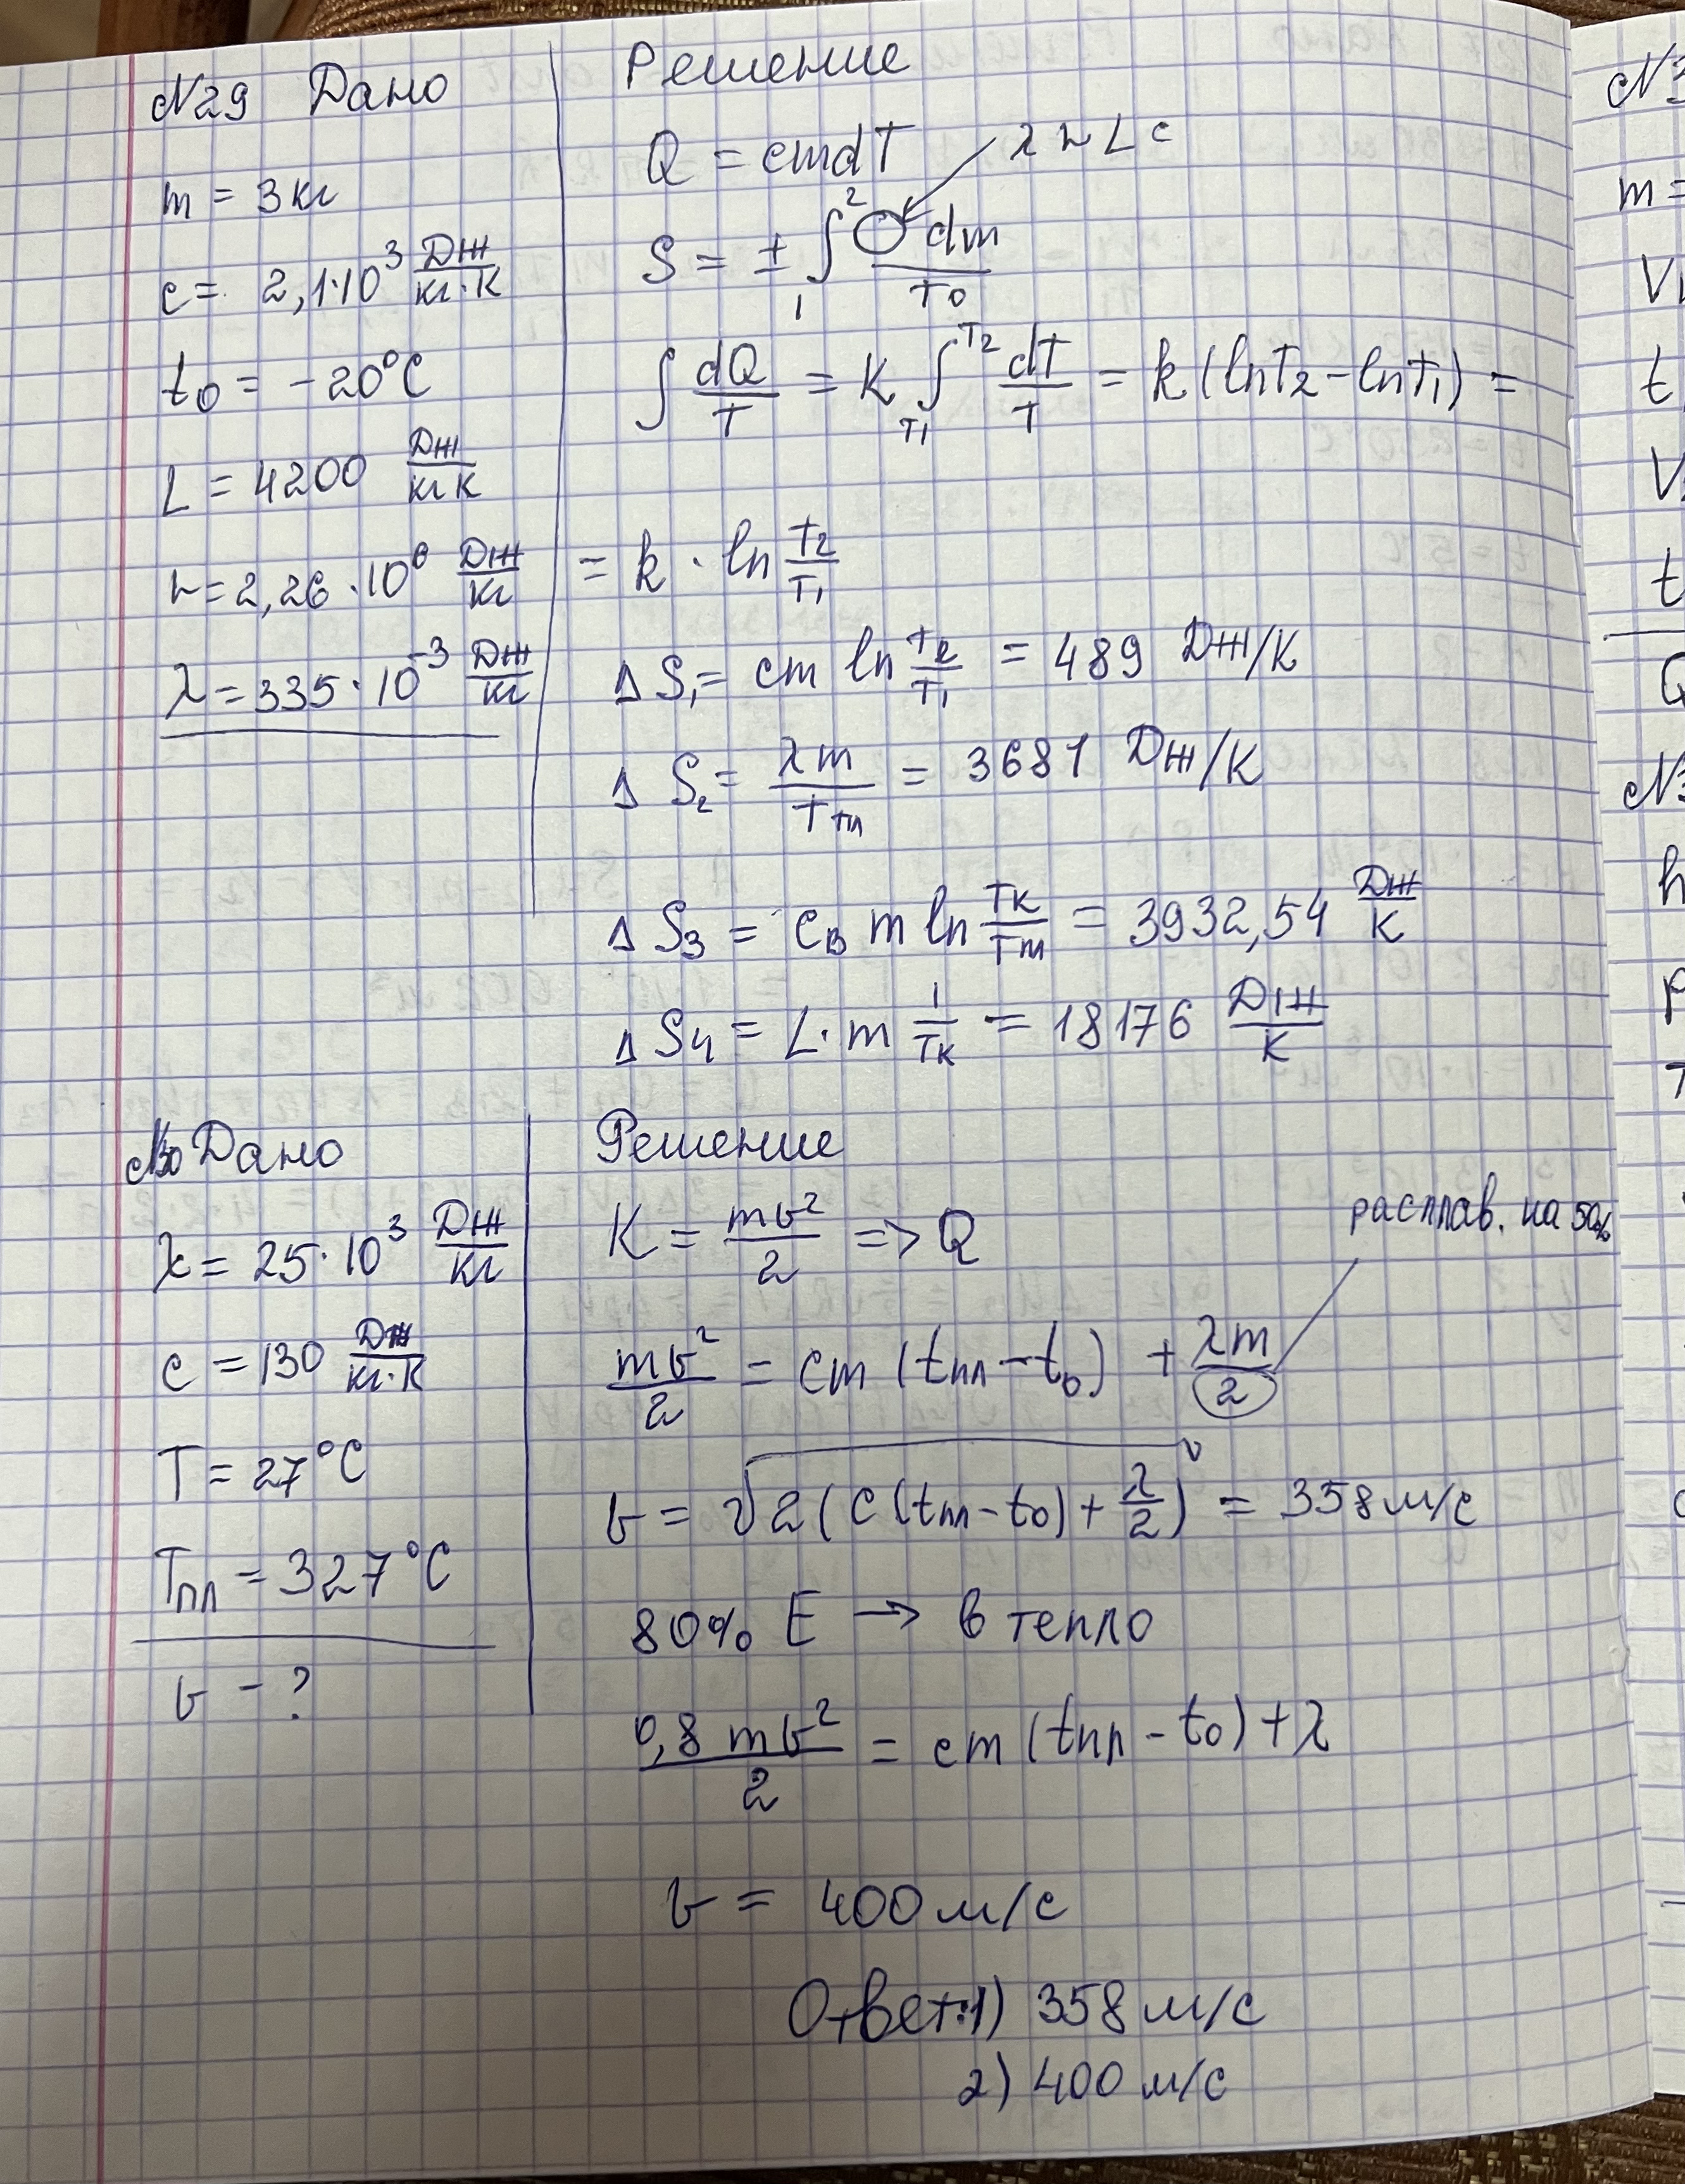 №29 Дано
m = 3 кг
c = 2,1·10³ Дж/кг·К
t₀ = -20°C
L = 4200 Дж/кг К
r = 2,26·10⁶ Дж/кг
λ = 335·10⁻³ Дж/кг
Решение
Q = cmdT
λ r L c
S = ± ∫₁² ◯ dm/T₀
∫ dQ/T = K ∫_T₁^T₂ dT/T = k (lnT₂ - lnT₁) =
= k · ln T₂/T₁
Δ S₁ = cm ln T₂/T₁ = 489 Дж/К
Δ S₂ = λm/Tпл = 3681 Дж/К
Δ S₃ = cв m ln Tк/Tm = 3932,54 Дж/К
Δ S₄ = L·m 1/Tк = 18176 Дж/К
№30 Дано
λ = 25·10³ Дж/кг
c = 130 Дж/кг·К
T = 27°C
Tпл = 327°C
v - ?
Решение
K = mv²/2 => Q
расплав. на 50%
mv²/2 = cm (tпл - t₀) + λm/2
v = √2(c(tпл - t₀) + λ/2) = 358 м/с
80% E → в тепло
0,8 mv²/2 = cm (tпл - t₀) + λ
v = 400 м/с
Ответ: 1) 358 м/с
2) 400 м/с
m =
t
t
Q